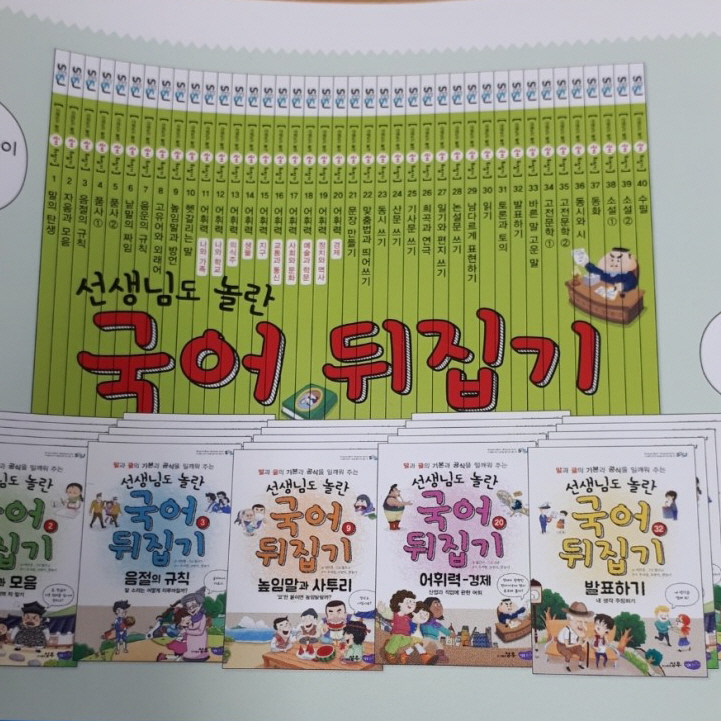 이
1 말의 탄생
2 자음과 모음
3 음절의 규칙
4 품사 ①
5 품사 ②
6 낱말의 짜임
7 음운의 규칙
8 고유어와 외래어
9 높임말과 방언
10 헷갈리는 말
11 어휘력 나와 가족
12 어휘력 나와 학교
13 어휘력 의식주
14 어휘력 생물
15 어휘력 지구
16 어휘력 교통과 통신
17 어휘력 사회와 문화
18 어휘력 예술과 학문
19 어휘력 정치와 역사
20 어휘력 경제
21 문장 만들기
22 맞춤법과 띄어 쓰기
23 동시 쓰기
24 산문 쓰기
25 기사문 쓰기
26 희곡과 연극
27 일기와 편지 쓰기
28 논설문 쓰기
29 남다르게 표현하기
30 읽기
31 토론과 토의
32 발표하기
33 바른 말 고운 말
34 고전문학 ①
35 고전문학 ②
36 동시와 시
37 동화
38 소설 ①
39 소설 ②
40 수필
선생님도 놀란
국어 뒤집기
님도 놀란
어 2
집기
모음
말과 글의 기본과 공식을 일깨워 주는
선생님도 놀란
국어 3
뒤집기
음절의 규칙
말과 글의 기본과 공식을 일깨워 주는
선생님도 놀란
국어 9
뒤집기
높임말과 사투리
말과 글의 기본과 공식을 일깨워 주는
선생님도 놀란
국어 20
뒤집기
어휘력-경제
산업과 직업에 관한 어휘
말과 글의 기본과 공식을 일깨워 주는
선생님도 놀란
국어 32
뒤집기
발표하기
내 생각 주장하기